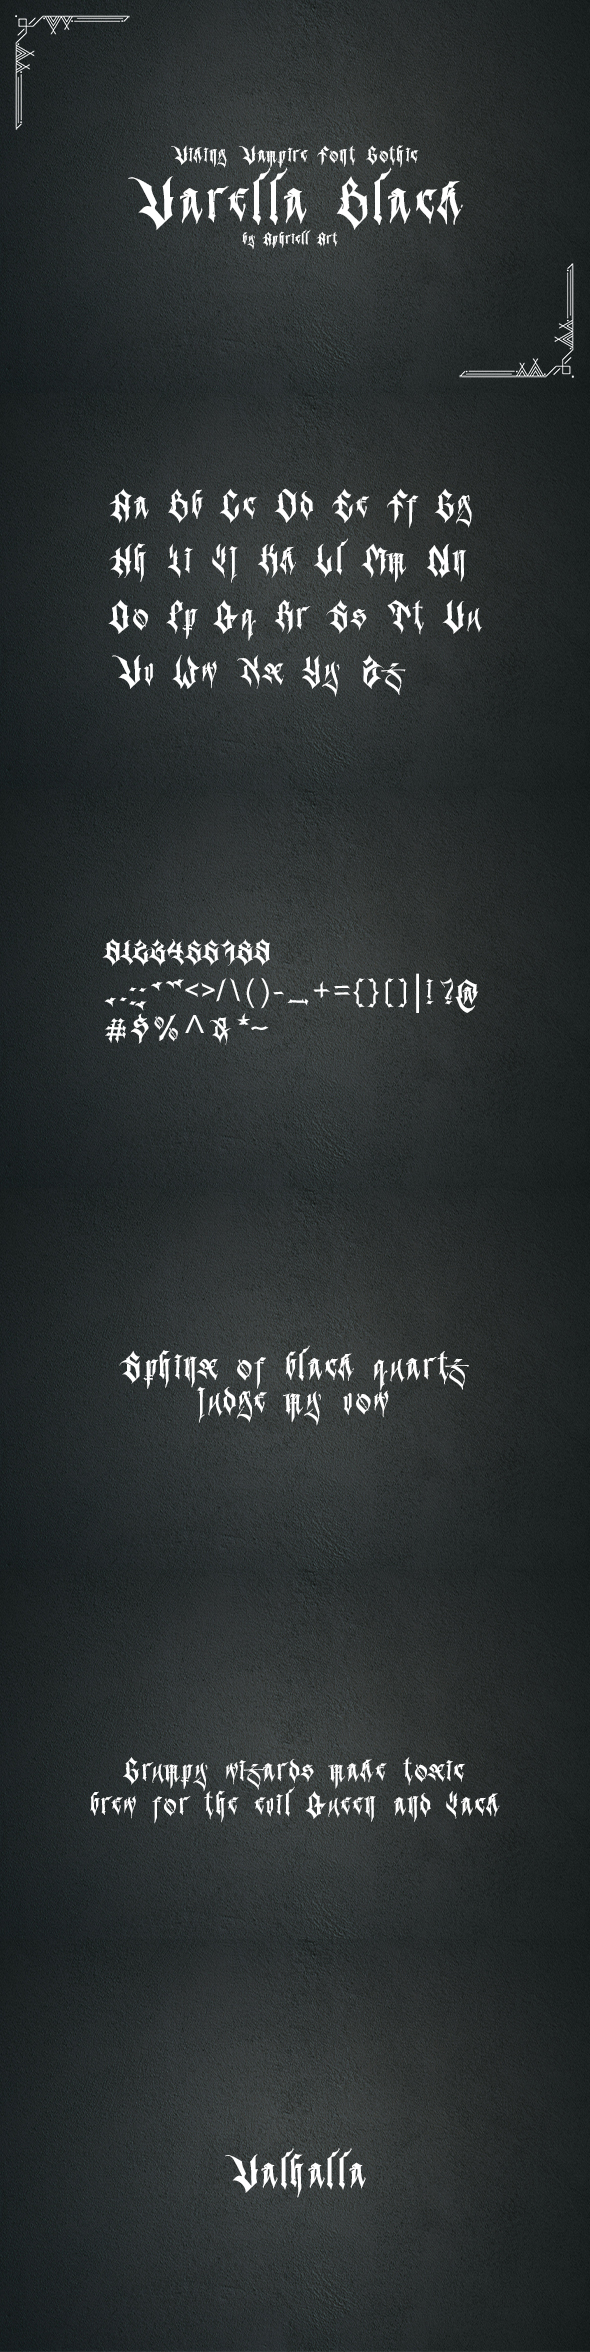 Viking Vampire Font Gothic
Varella Black
by Aphriell Art
Aa Bb Cc Dd Ee Ff Gg
Hh Ii Jj Kk Ll Mm Nn
Oo Pp Qq Rr Ss Tt Uu
Vv Ww Xx Yy Zz
0123456789
.,:;'"<>/\()-_+={}[]|!?@
#$%^&*~
Sphinx of black quartz
judge my vow
Grumpy wizards make toxic
brew for the evil Queen and Jack
Valhalla